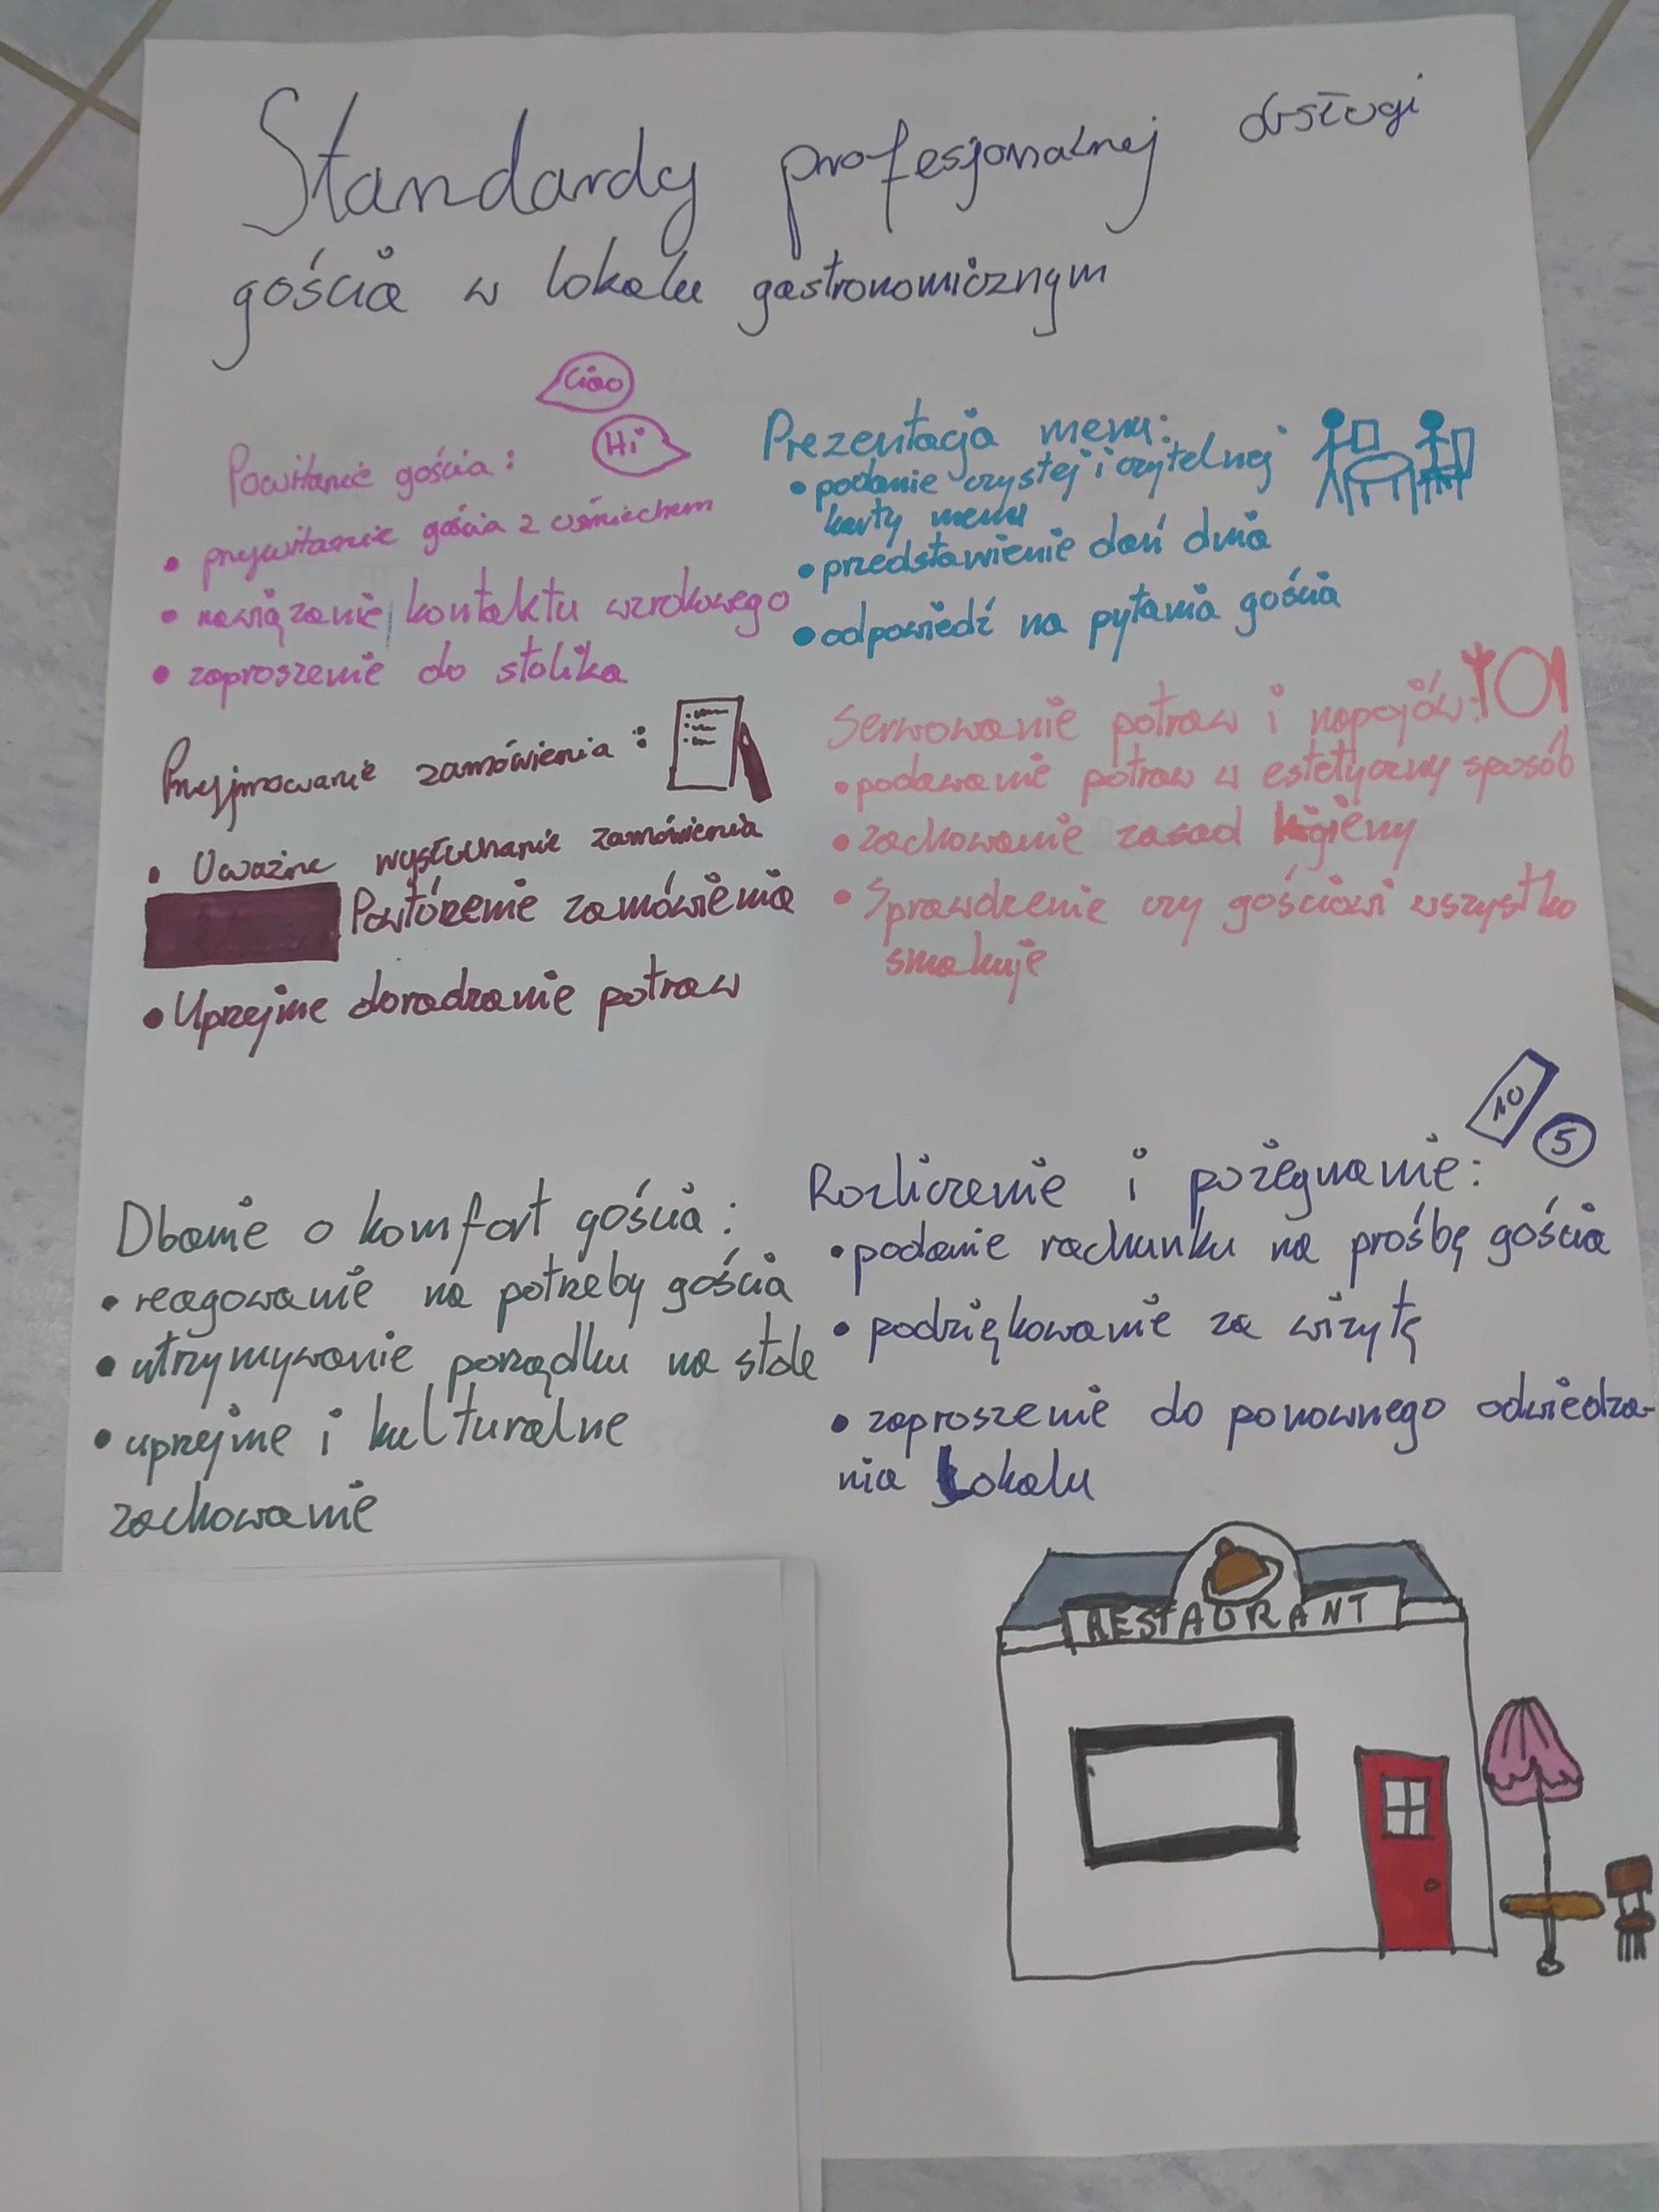 Standardy profesjonalnej obsługi
gościa w lokalu gastronomicznym
Ciao
Hi
Powitanie gościa:
• przywitanie gościa z uśmiechem
• nawiązanie kontaktu wzrokowego
• zaproszenie do stolika
Prezentacja menu:
• podanie czystej i czytelnej
karty menu
• przedstawienie dań dnia
• odpowiedź na pytania gościa
Przyjmowanie zamówienia:
• Uważne wysłuchanie zamówienia
Powtórzenie zamówienia
• Uprejme doradzanie potraw
Serwowanie potraw i napojów:
• podawanie potraw w estetyczny sposób
• zachowanie zasad higieny
• Sprawdzenie czy gościowi wszystko
smakuje
Dbanie o komfort gościa:
• reagowanie na potrzeby gościa
• utrzymywanie porządku na stole
• uprejme i kulturalne
zachowanie
10
5
Rozliczenie i pożegnanie:
• podanie rachunku na prośbę gościa
• podziękowanie za wizytę
• zaproszenie do ponownego odwiedza-
nia Lokalu
RESTAURANT